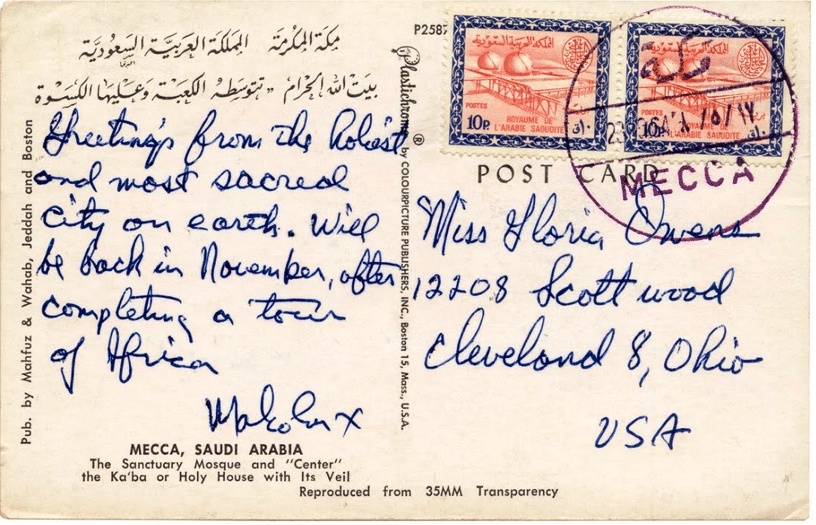 P2587
مكة المكرمة المملكة العربية السعودية
بيت الله الحرام - تتوسطه الكعبة وعليها الكسوة
Greetings from the holiest
and most sacred
city on earth. Will
be back in November, after
completing a tour
of Africa
Malcolm X
MECCA, SAUDI ARABIA
The Sanctuary Mosque and "Center"
the Ka'ba or Holy House with Its Veil
Reproduced from 35MM Transparency
Pub. by Mahfuz & Wahab, Jeddah and Boston
Plastichrome ® by COLOURPICTURE PUBLISHERS, INC., Boston 15, Mass., U.S.A.
المملكة العربية السعودية
POSTES
ROYAUME DE
10P. L'ARABIE SAOUDITE
المملكة العربية السعودية
POSTES
ROYAUME DE
10P. L'ARABIE SAOUDITE
مكة
MECCA
POST CARD
Miss Gloria Owens
12208 Scottwood
Cleveland 8, Ohio
USA